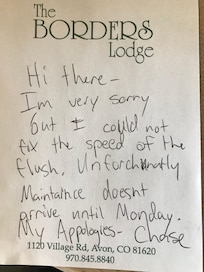 The
BORDERS
Lodge
Hi there-
I'm very sorry
but I could not
fix the speed of the
flush. Unforchunatly
Maintaitnce doesn't
arrive until Monday.
My Appologies- Chase
1120 Village Rd, Avon, CO 81620
970.845.8840